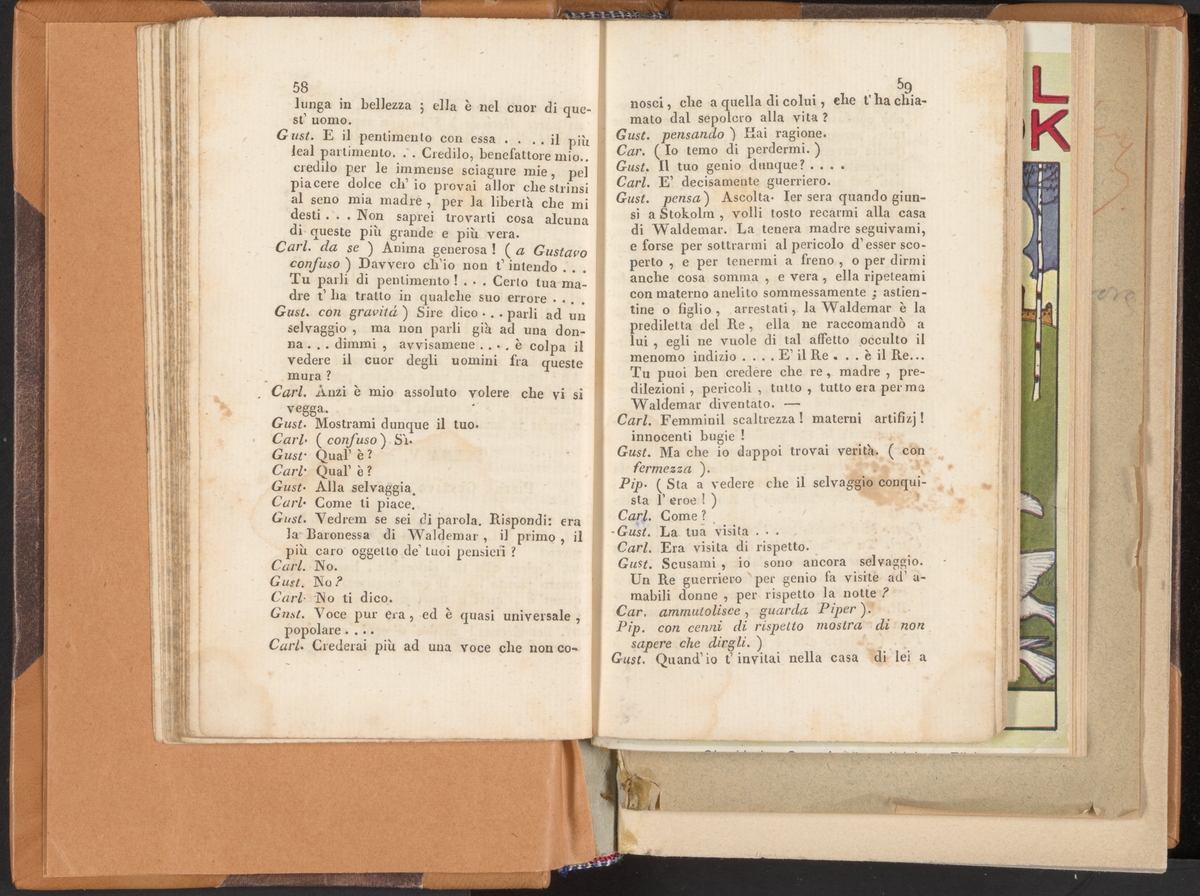 58
lunga in bellezza ; ella è nel cuor di que-
st' uomo.
Gust. E il pentimento con essa . . . . il più
leal partimento. . . Credilo, benefattore mio..
credilo per le immense sciagure mie, pel
piacere dolce ch' io provai allor che strinsi
al seno mia madre, per la libertà che mi
desti . . . Non saprei trovarti cosa alcuna
di queste più grande e più vera.
Carl. da se ) Anima generosa ! ( a Gustavo
confuso ) Davvero ch'io non t' intendo . . .
Tu parli di pentimento ! . . . Certo tua ma-
dre t' ha tratto in qualche suo errore . . . .
Gust. con gravità ) Sire dico . . . parli ad un
selvaggio , ma non parli già ad una don-
na . . . dimmi , avvisamene . . . . è colpa il
vedere il cuor degli uomini fra queste
mura ?
Carl. Anzi è mio assoluto volere che vi si
vegga.
Gust. Mostrami dunque il tuo.
Carl. ( confuso ) Sì.
Gust. Qual' è ?
Carl. Qual' è ?
Gust. Alla selvaggia.
Carl. Come ti piace.
Gust. Vedrem se sei di parola. Rispondi: era
la Baronessa di Waldemar , il primo , il
più caro oggetto de' tuoi pensieri ?
Carl. No.
Gust. No ?
Carl. No ti dico.
Gnst. Voce pur era , ed è quasi universale ,
popolare . . . .
Carl. Crederai più ad una voce che non co-
59
nosci , che a quella di colui , che t' ha chia-
mato dal sepolcro alla vita ?
Gust. pensando ) Hai ragione.
Car. ( Io temo di perdermi. )
Gust. Il tuo genio dunque ? . . . .
Carl. E' decisamente guerriero.
Gust. pensa ) Ascolta. Ier sera quando giun-
si a Stokolm , volli tosto recarmi alla casa
di Waldemar. La tenera madre seguivami,
e forse per sottrarmi al pericolo d' esser sco-
perto , e per tenermi a freno , o per dirmi
anche cosa somma , e vera , ella ripeteami
con materno anelito sommessamente ; astien-
tine o figlio , arrestati , la Waldemar è la
prediletta del Re , ella ne raccomandò a
lui , egli ne vuole di tal affetto occulto il
menomo indizio . . . . E' il Re . . . è il Re...
Tu puoi ben credere che re , madre , pre-
dilezioni , pericoli , tutto , tutto era per me
Waldemar diventato. —
Carl. Femminil scaltrezza ! materni artifizj !
innocenti bugie !
Gust. Ma che io dappoi trovai verità. ( con
fermezza ).
Pip. ( Sta a vedere che il selvaggio conqui-
sta l' eroe ! )
Carl. Come ?
Gust. La tua visita . . .
Carl. Era visita di rispetto.
Gust. Scusami , io sono ancora selvaggio.
Un Re guerriero per genio fa visite ad' a-
mabili donne , per rispetto la notte ?
Car. ammutolisce , guarda Piper ).
Pip. con cenni di rispetto mostra di non
sapere che dirgli. )
Gust. Quand' io t' invitai nella casa di lei a
L
OK